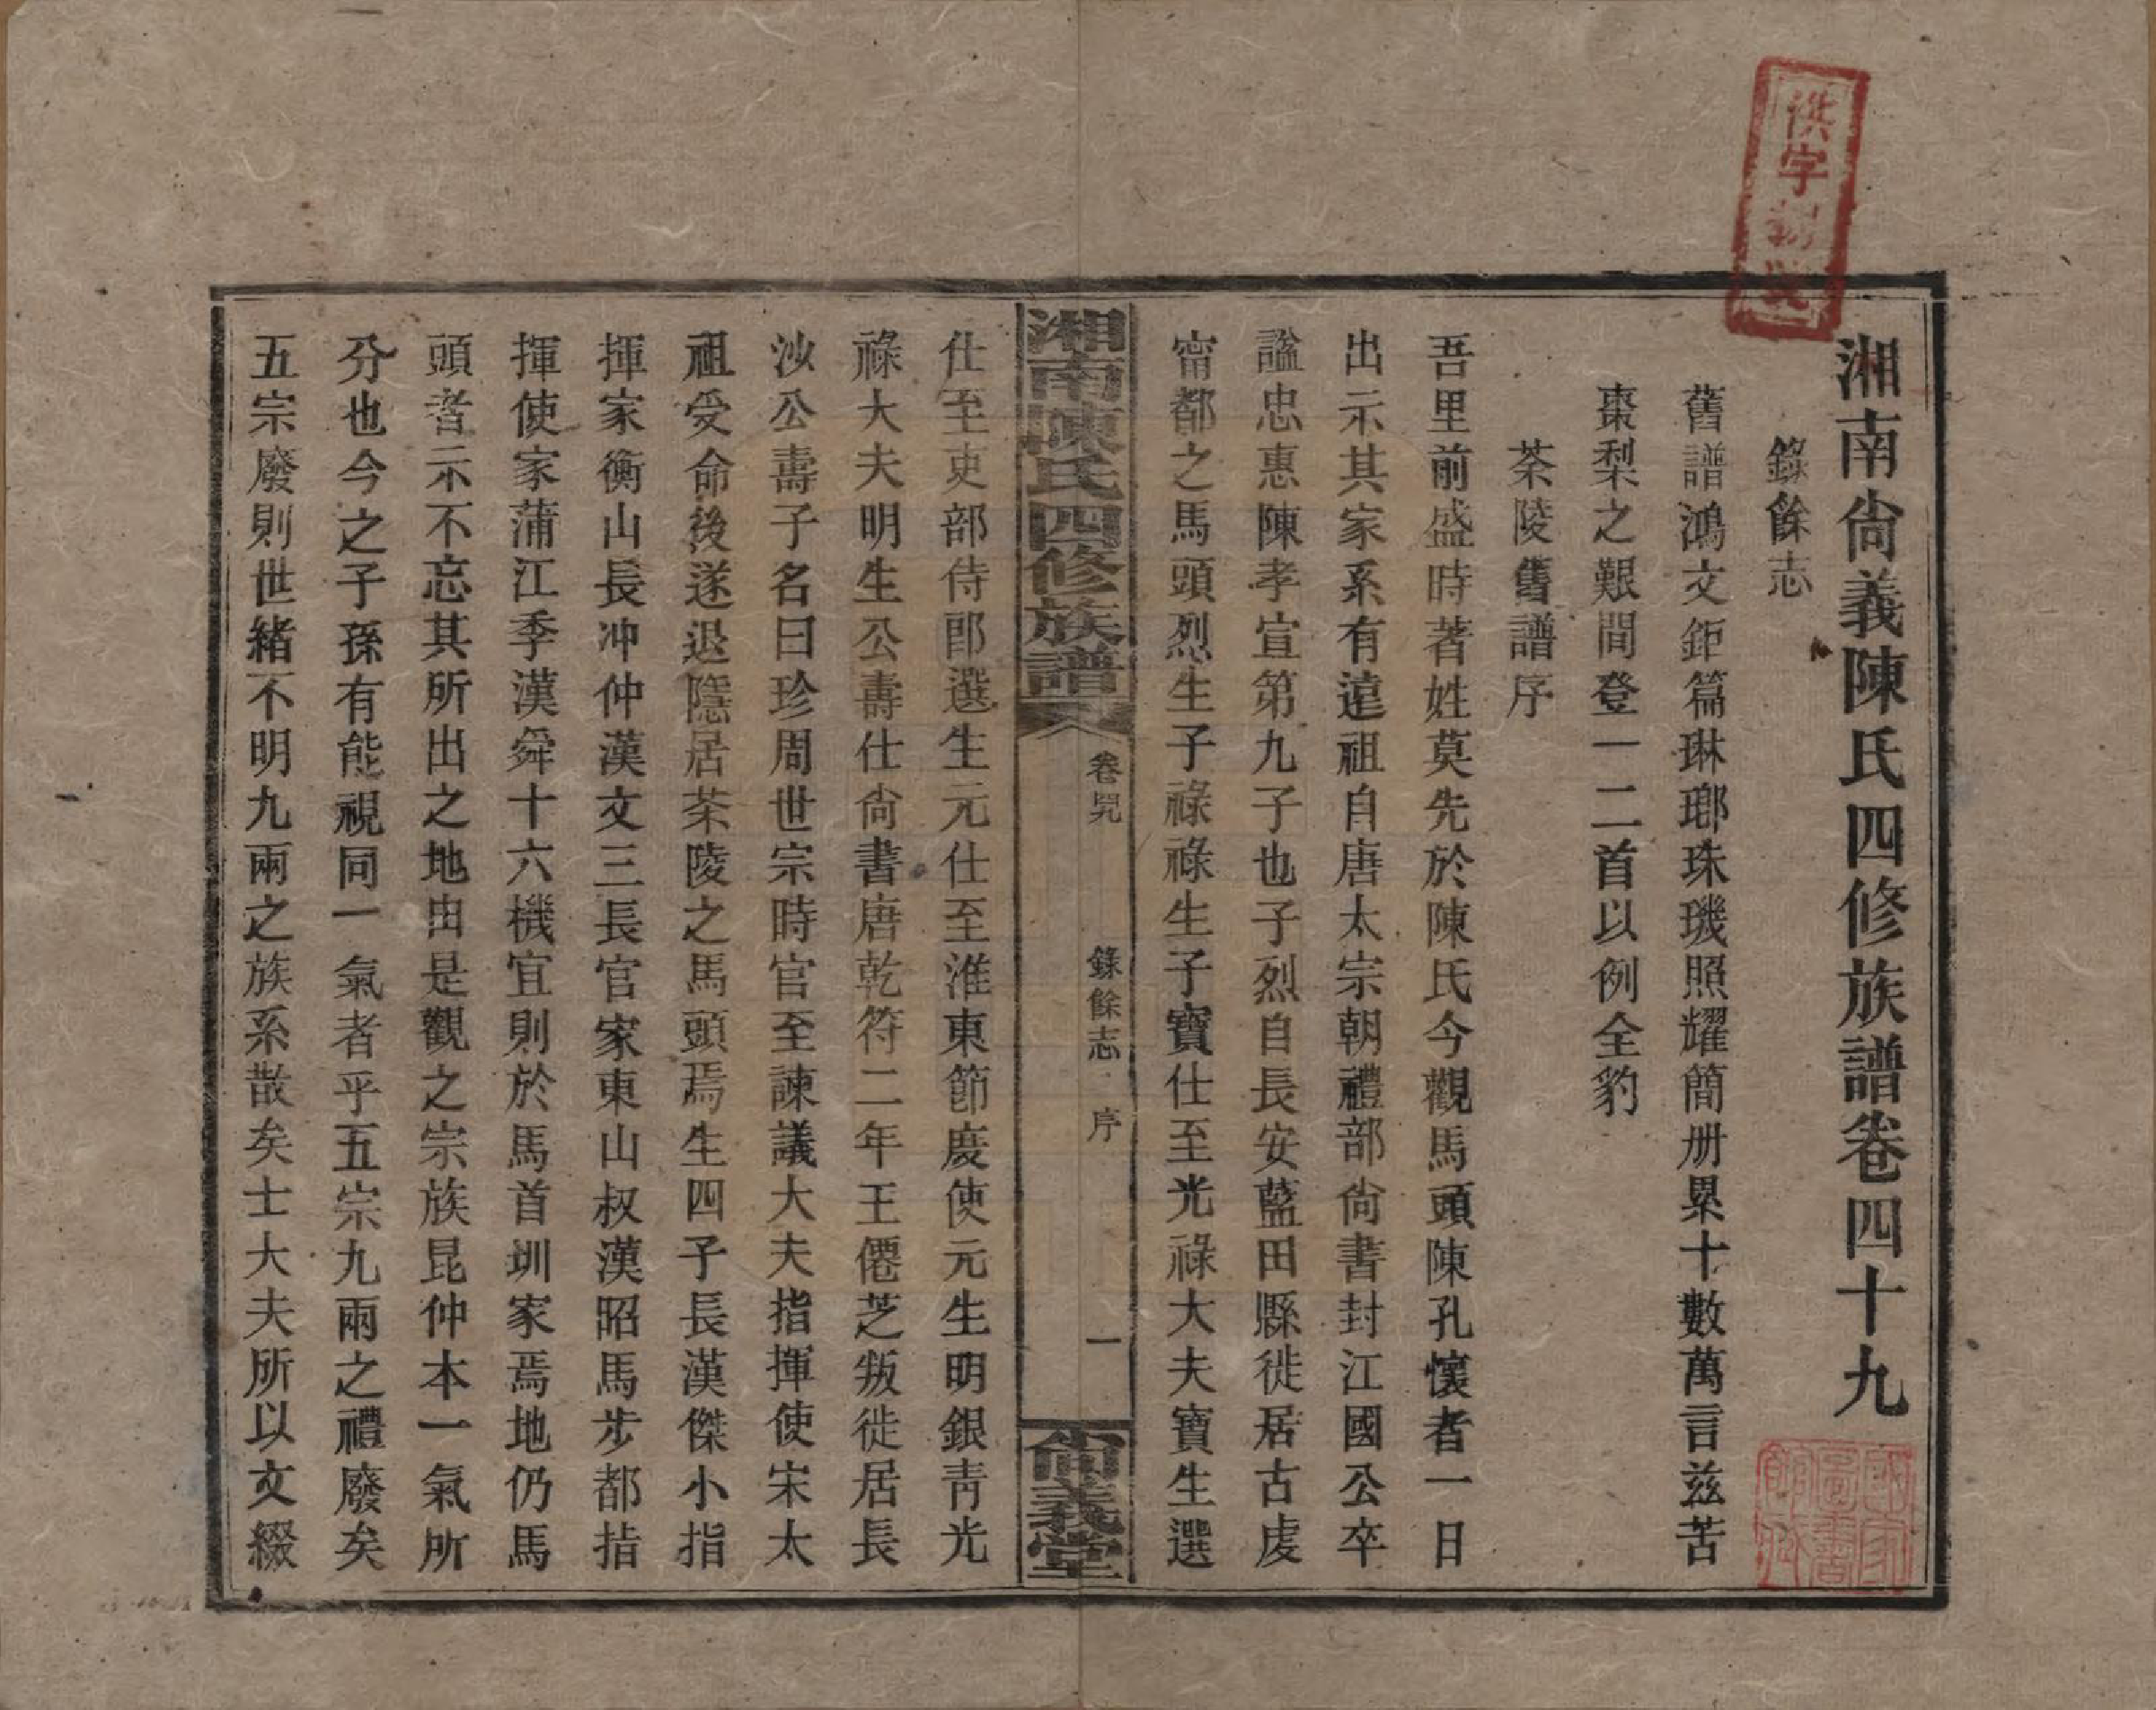 湘南尙義陳氏四修族譜卷四十九
錄餘志
舊譜鴻文鉅篇琳瑯珠璣照耀簡册累十數萬言兹苦
棗梨之艱間登一二首以例全豹
茶陵舊譜序
吾里前盛時著姓莫先於陳氏今觀馬頭陳孔懷者一日
出示其家系有遠祖自唐太宗朝禮部尙書封江國公卒
諡忠惠陳孝宣第九子也子烈自長安藍田縣徙居古虔
甯都之馬頭烈生子祿祿生子寶仕至光祿大夫寶生選
湘南陳氏四修族譜
卷咒
錄餘志
序
一
尙義堂
仕至吏部侍郎選生元仕至淮東節度使元生明銀青光
祿大夫明生公壽仕尙書唐乾符二年王僊芝叛徙居長
沙公壽子名曰珍周世宗時官至諫議大夫指揮使宋太
祖受命後遂退隱居茶陵之馬頭焉生四子長漢傑小指
揮家衡山長冲仲漢文三長官家東山叔漢昭馬步都指
揮使家蒲江季漢舜十六機宜則於馬首圳家焉地仍馬
頭者示不忘其所出之地由是觀之宗族昆仲本一氣所
分也今之子孫有能視同一氣者乎五宗九兩之禮廢矣
五宗廢則世緒不明九兩之族系散矣士大夫所以文綴
供字
國家圖書館藏